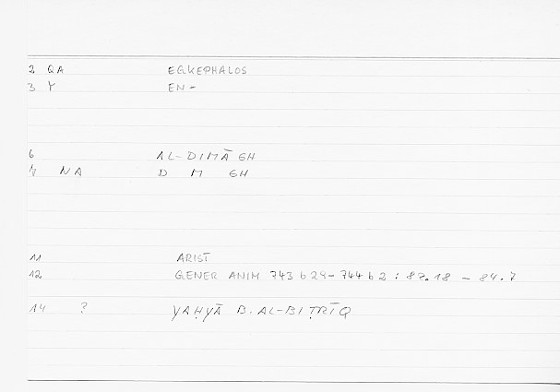 2 QA EGKEPHALOS
3 Y EN-
6 AL-DIMĀGH
7 NA D M GH
11 ARIST
12 GENER ANIM 743 b 29 - 744 b 2 : 82.18 - 84.7
14 ? YAḤYĀ B. AL-BIṬRĪQ